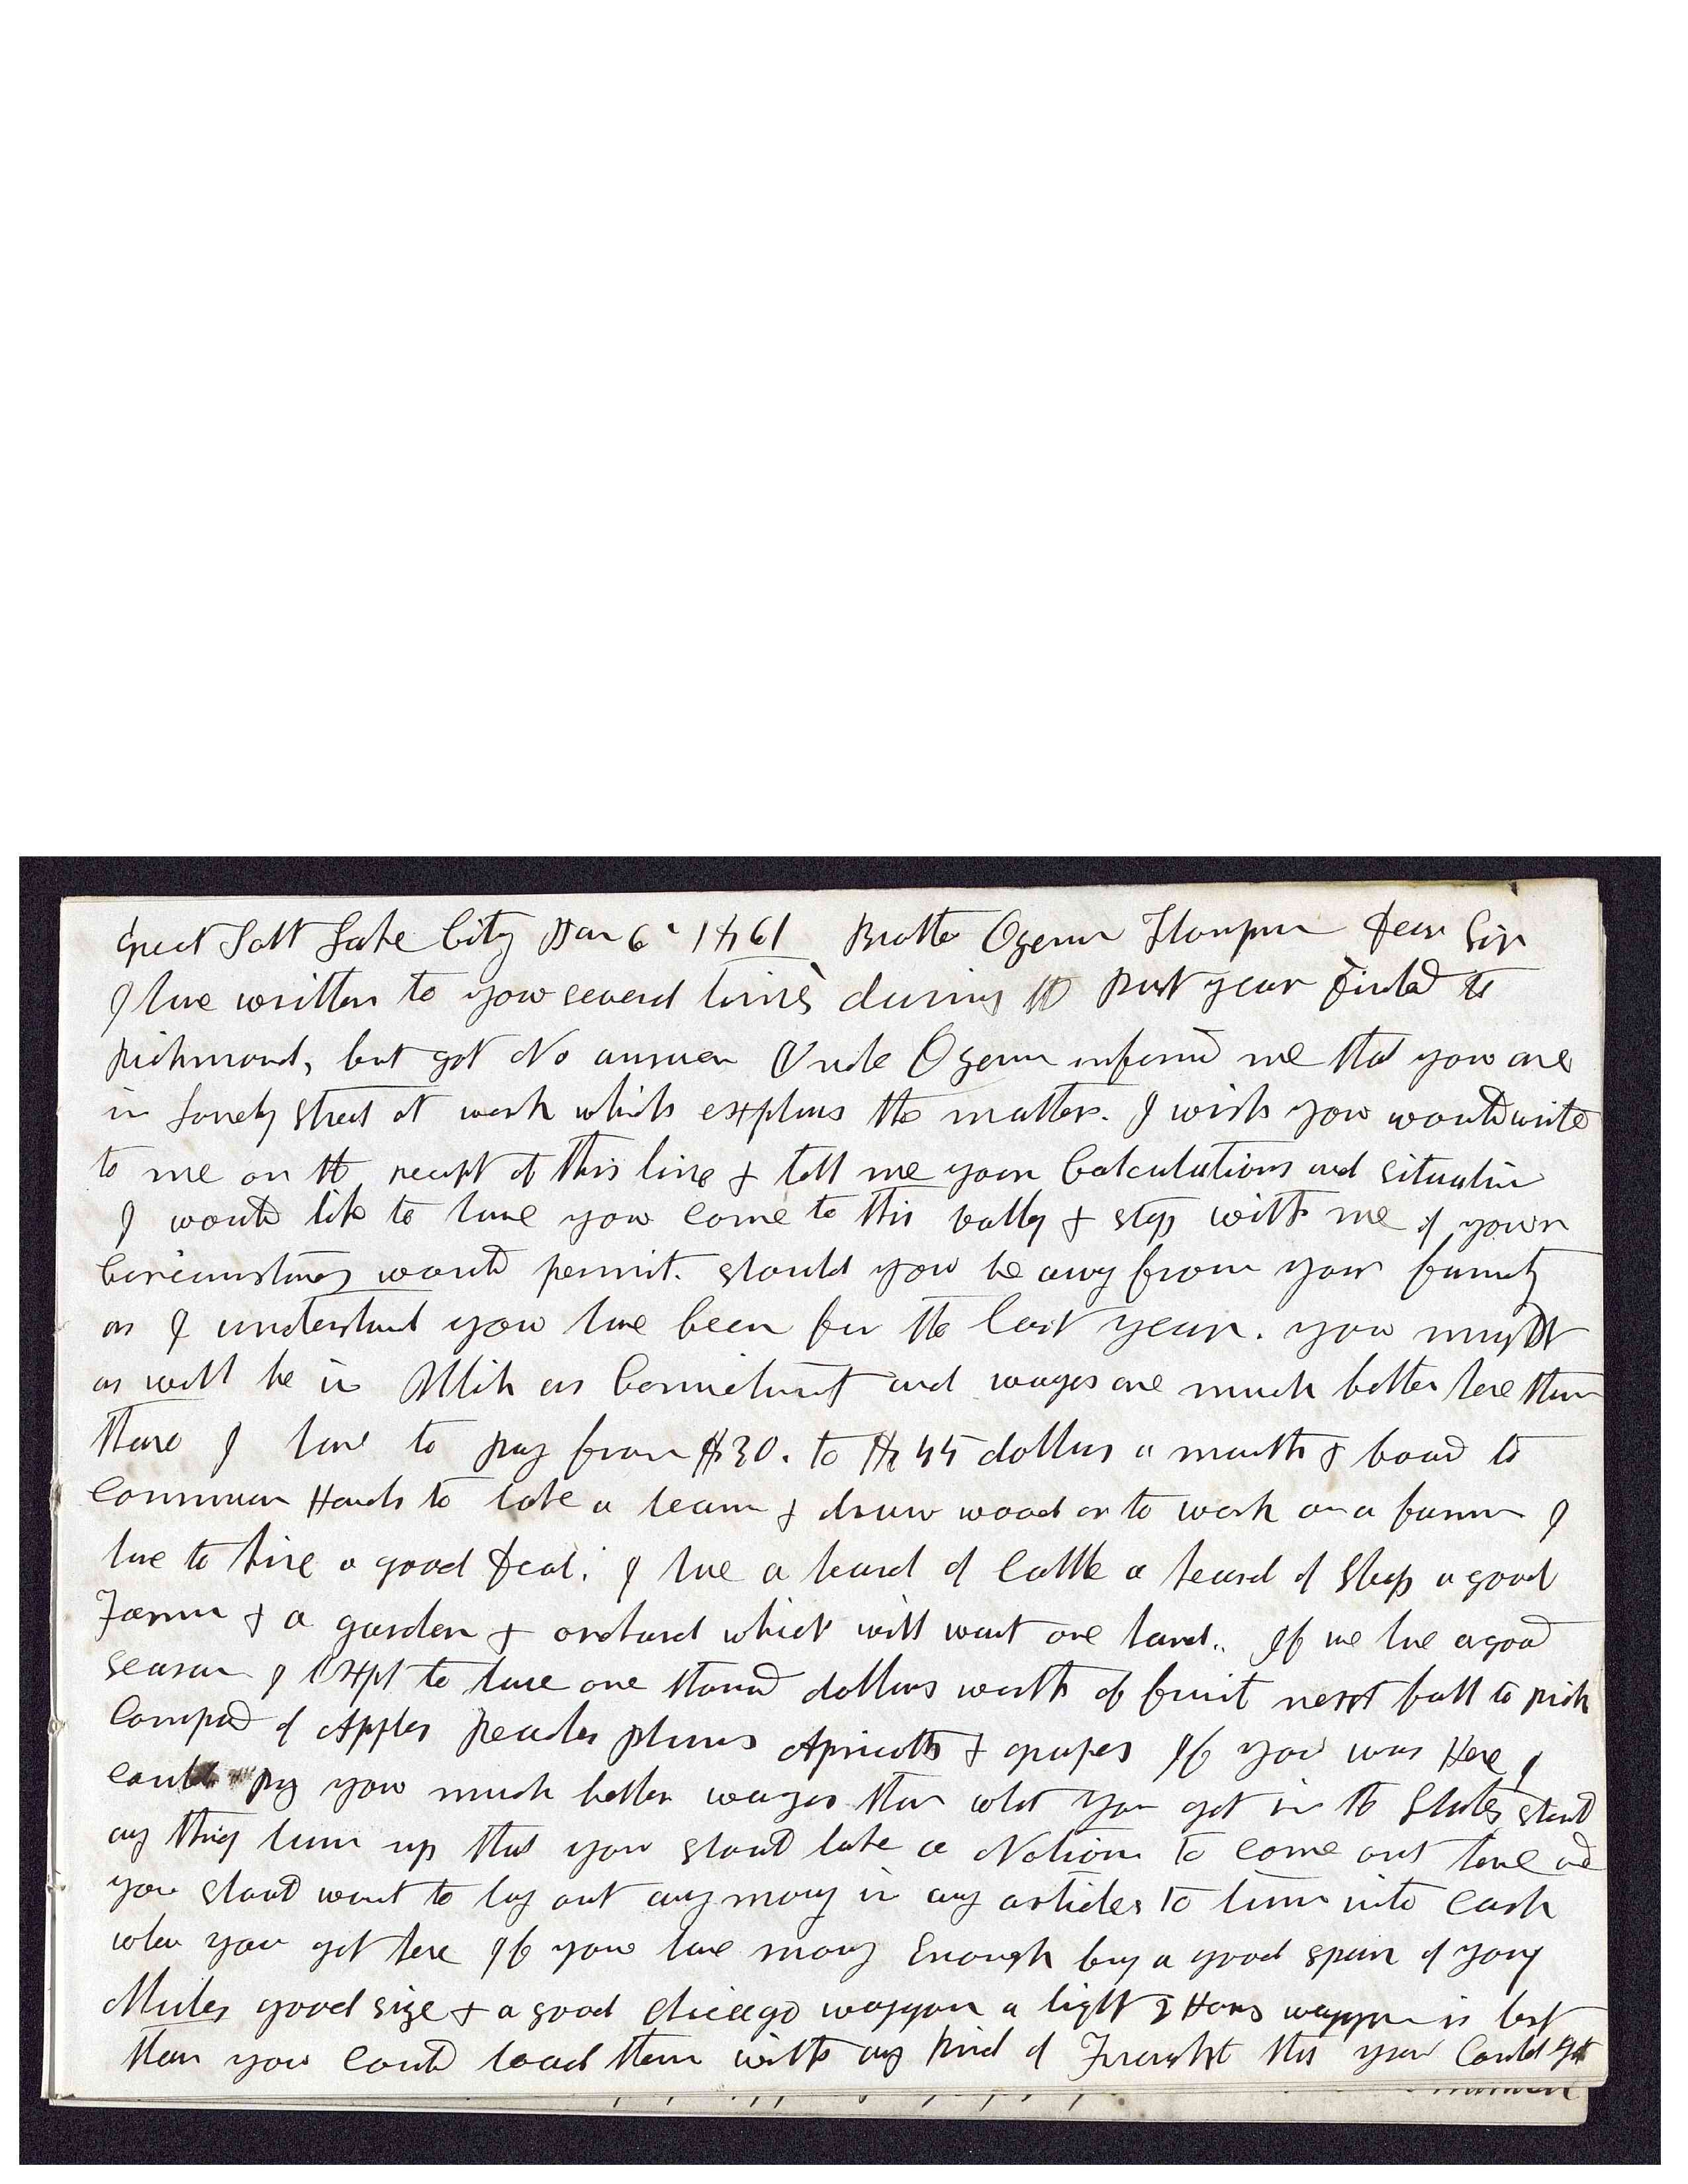 Great Salt Lake City Mar 6th 1861 Brother Ozem Thompson Dear Sir
I have written to you several times during the past year directed to
Richmond, but got No answer Uncle Ozem informed me that you are
in Lovely Street at work which explains the matter. I wish you would write
to me on the receipt of this line & tell me your Calculations and situation
I would like to have you come to this vally & stop with me if your
Circumstances would permit. should you be away from your family
as I understand you have been for the last year. you might
as well be in Utah as Connecticut and wages are much better here than
there I have to pay from $30. to $45 dollars a month & board to
Common Hands to take a team & draw wood or to work on a farm I
have to hire a good deal. I have a heard of Cattle a heard of Sheep a good
Farm & a garden & orchard which will want one hand.. If we have a good
season I Expt to have one thousand dollars worth of fruit next fall to pick
Composed of Apples peaches plums Apricotts & grapes If you was Here I
could pay you much better wages than what you get in the States, should
any thing turn up that you should take a Notion to come out here and
you should want to lay out any money in any articles to turn into Cash
when you got here If you have money Enough buy a good span of young
Mules good size & a good Chicago waggon a light 2 Hors waggon is best
then you could load them with any kind of Fraught this year Could get